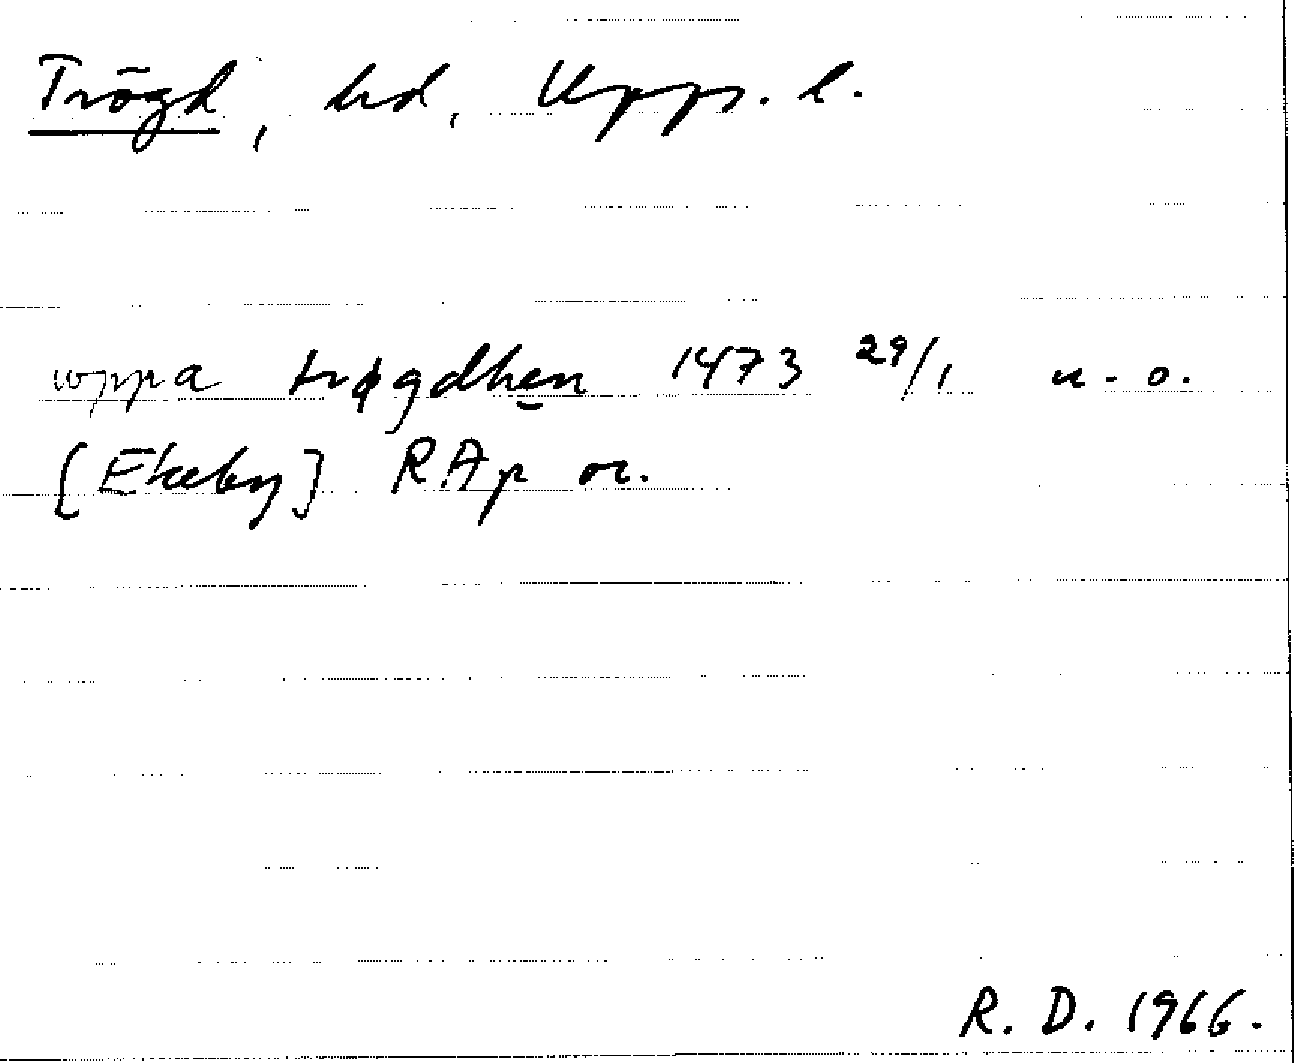 Trögd, hd, Upps. l.
wppa trøgdhen 1473 29/1 u. o.
[Ekeby] RAp or.
R. D. 1966.